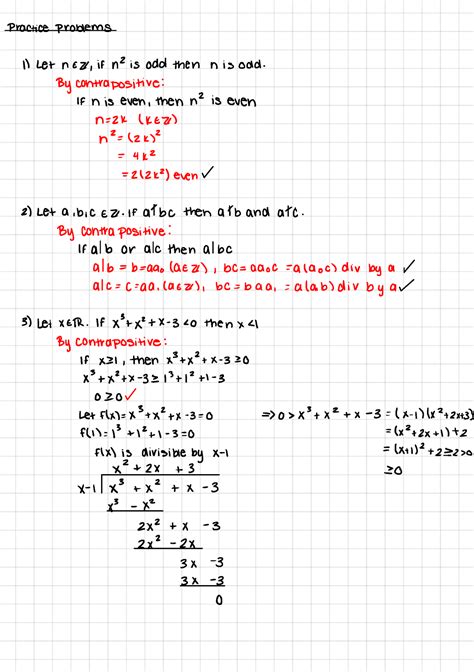 Practice Problems
1) Let n∈ℤ, if n² is odd then n is odd.
By contrapositive:
If n is even, then n² is even
n=2k (k∈ℤ)
n²=(2k)²
= 4k²
=2(2k²) even ✓
2) Let a,b,c ∈ℤ. If a∤bc then a∤b and a∤c.
By contrapositive:
If a|b or a|c then a|bc
a|b = b=aa₀ (a∈ℤ), bc=aa₀c =a(a₀c) div by a ✓
a|c = c=aa₁(a∈ℤ), bc=baa₁ = a(ab) div by a ✓
3) Let x∈ℝ. If x³+x²+x-3<0 then x<1
By contrapositive:
If x≥1, then x³+x²+x-3≥0
x³+x²+x-3≥1³+1²+1-3
0≥0 ✓
Let f(x)=x³+x²+x-3=0
f(1)=1³+1²+1-3=0
f(x) is divisible by x-1
x² + 2x + 3
x-1 | x³ + x² + x - 3
x³ - x²
2x² + x - 3
2x² - 2x
3x - 3
3x - 3
0
⇒0 > x³+x²+x-3 = (x-1)(x²+2x+3)
=(x²+2x+1)+2
=(x+1)²+2≥2>0
≥0